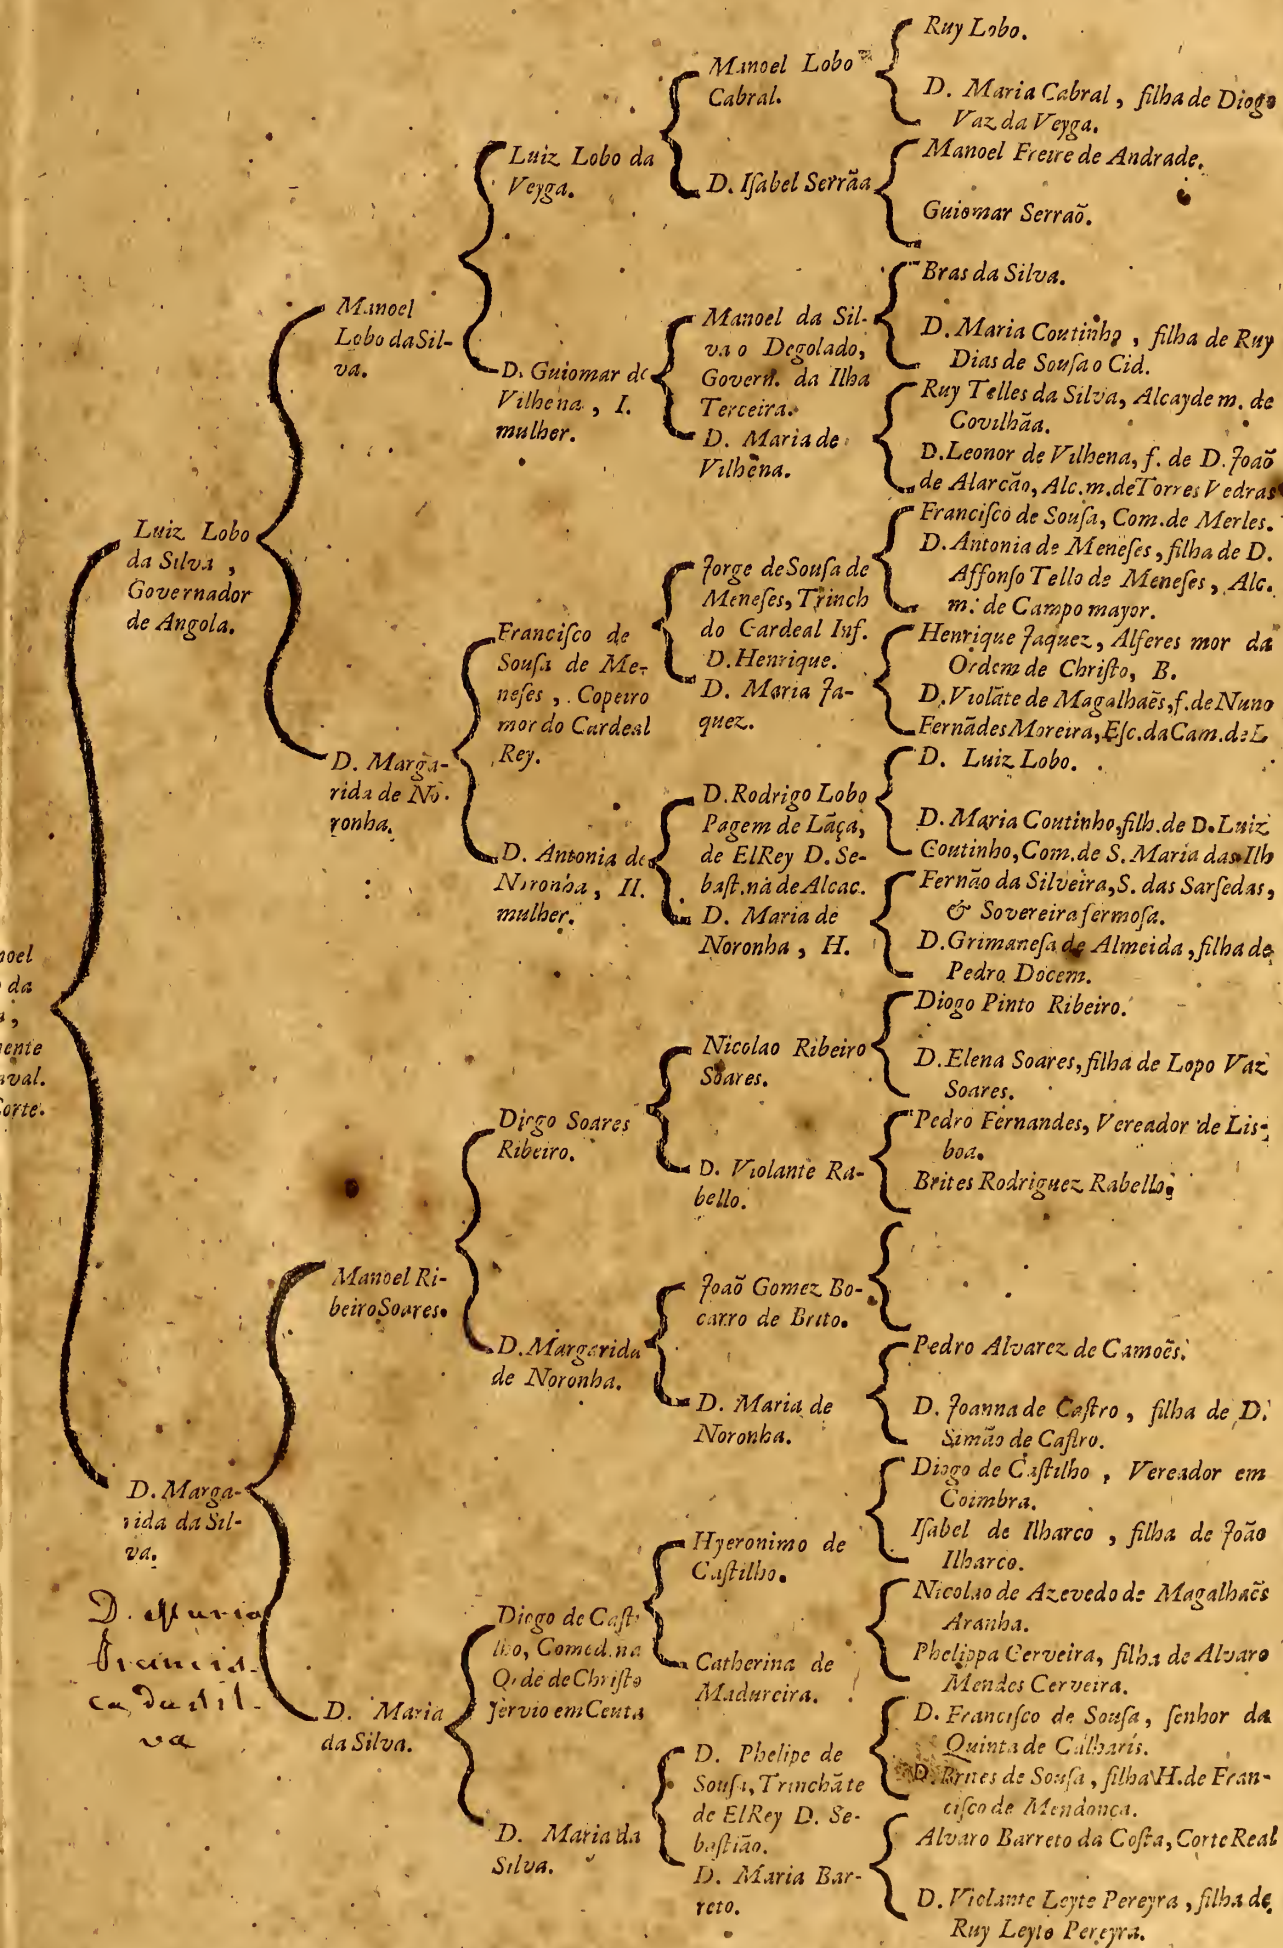 noel
da
,
ente
aval.
Corte.
Luiz Lobo
da Silva ,
Governador
de Angola.
D. Marga-
rida da Sil-
va.
D.
va
Manoel
Lobo da Sil-
va.
D. Marga-
rida de No-
ronha.
Manoel Ri-
beiro Soares.
D. Maria
da Silva.
Luiz Lobo da
Veyga.
D. Guiomar de
Vilhena , I.
mulher.
Franciſco de
Souſa de Me-
neſes , Copeiro
mor do Cardeal
Rey.
D. Antonia de
Noronha , II.
mulher.
Diogo Soares
Ribeiro.
D. Margarida
de Noronha.
Diogo de Caſti-
lho, Comed. na
Orde de Chriſto
ſervio em Ceuta
D. Maria da
Silva.
Manoel Lobo
Cabral.
D. Iſabel Serrãa
Manoel da Sil-
va o Degolado,
Govern. da Ilha
Terceira.
D. Maria de
Vilhena.
Jorge de Souſa de
Meneſes, Trinch
do Cardeal Inf.
D. Henrique.
D. Maria Ja-
quez.
D. Rodrigo Lobo
Pagem de Lãça,
de ElRey D. Se-
baſt. na de Alcac.
D. Maria de
Noronha , H.
Nicolao Ribeiro
Soares.
D. Violante Ra-
bello.
Joaõ Gomez Bo-
carro de Brito.
D. Maria de
Noronha.
Hyeronimo de
Caſtilho.
Catherina de
Madureira.
D. Phelipe de
Souſa, Trinchãte
de ElRey D. Se-
baſtião.
D. Maria Bar-
reto.
Ruy Lobo.
D. Maria Cabral , filha de Diogo
Vaz da Veyga.
Manoel Freire de Andrade.
Guiomar Serraõ.
Bras da Silva.
D. Maria Coutinho , filha de Ruy
Dias de Souſa o Cid.
Ruy Telles da Silva, Alcayde m. de
Covilhãa.
D. Leonor de Vilhena, f. de D. Joaõ
de Alarcão, Alc. m. de Torres Vedras
Franciſco de Souſa, Com. de Merles.
D. Antonia de Meneſes , filha de D.
Affonſo Tello de Meneſes , Alc.
m. de Campo mayor.
Henrique Jaquez, Alferes mor da
Ordem de Chriſto, B.
D. Violãte de Magalhaẽs, f. de Nuno
Fernãdes Moreira, Eſc. da Cam. de L
D. Luiz Lobo.
D. Maria Coutinho, filh. de D. Luiz
Coutinho, Com. de S. Maria das Ilh
Fernão da Silveira, S. das Sarſedas,
& Sovereira fermoſa.
D. Grimaneſa de Almeida , filha de
Pedro Docem.
Diogo Pinto Ribeiro.
D. Elena Soares, filha de Lopo Vaz
Soares.
Pedro Fernandes, Vereador de Lis-
boa.
Brites Rodriguez Rabello.
Pedro Alvarez de Camoẽs.
D. Joanna de Caſtro , filha de D.
Simão de Caſtro.
Diogo de Caſtilho , Vereador em
Coimbra.
Iſabel de Ilharco , filha de João
Ilharco.
Nicolao de Azevedo de Magalhaẽs
Aranha.
Phelippa Cerveira, filha de Alvaro
Mendes Cerveira.
D. Franciſco de Souſa, ſenhor da
Quinta de Calharis.
D. Brites de Souſa , filha H. de Fran-
ciſco de Mendonca.
Alvaro Barreto da Coſta, Corte Real
D. Violante Leyte Pereyra , filha de
Ruy Leyte Pereyra.